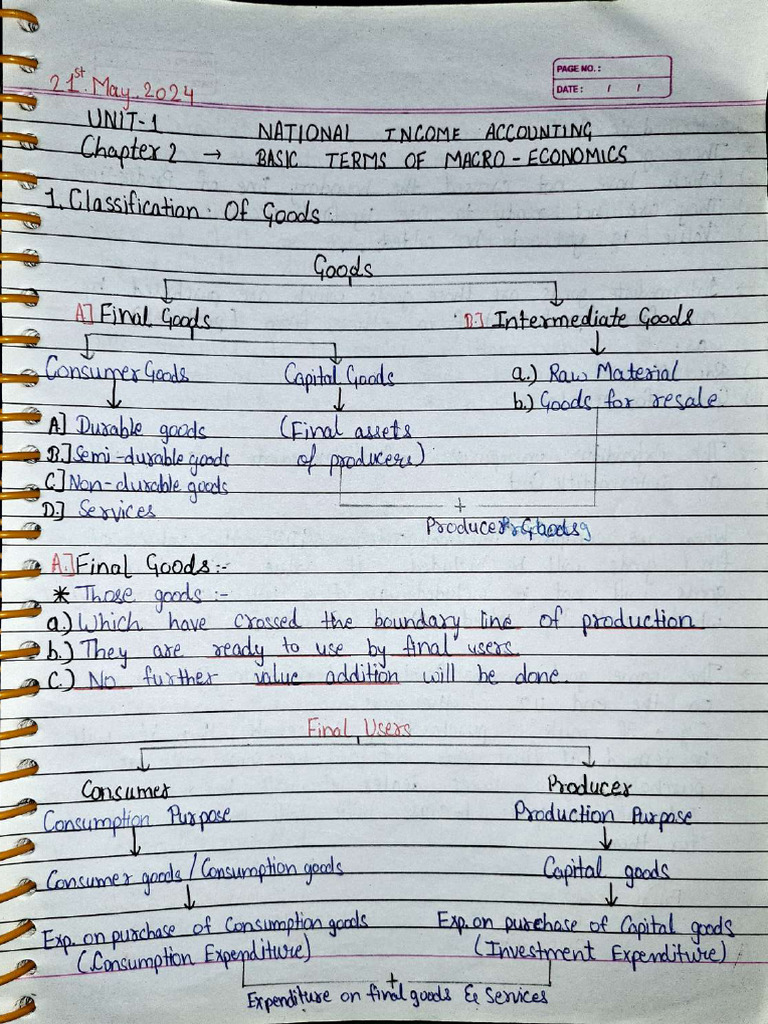 PAGE NO.:
DATE: / /
21st May 2024
UNIT-1 NATIONAL INCOME ACCOUNTING
Chapter 2 → BASIC TERMS OF MACRO-ECONOMICS
1. Classification Of Goods.
Goods
A] Final Goods B.] Intermediate Goods
Consumer Goods Capital Goods a.) Raw Material
b.) Goods for resale
A] Durable goods (Final assets
B.] Semi-durable goods of producers)
C] Non-durable goods
D.] Services +
Producer Goods
A.] Final Goods:-
* Those goods :-
a) Which have crossed the boundary line of production
b.) They are ready to use by final users.
C.) No further value addition will be done.
Final Users
Consumer Producer
Consumption Purpose Production Purpose
Consumer goods / Consumption goods Capital goods
Exp. on purchase of Consumption goods Exp. on purchase of Capital goods
(Consumption Expenditure) (Investment Expenditure)
+
Expenditure on final goods & Services